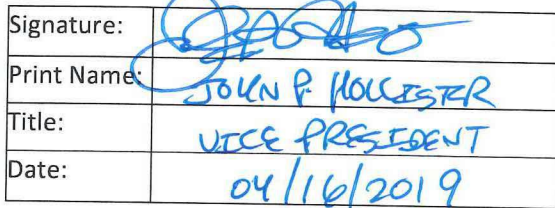 Signature:
Print Name: JOHN P. HOLLISTER
Title: VICE PRESIDENT
Date: 04/16/2019